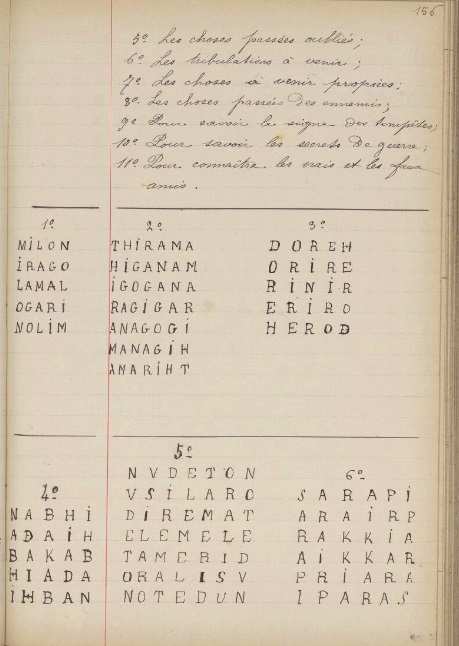 156
5º Les choses passées oubliés;
6º Les tribulations à venir;
7º Les choses à venir propices;
8º Les choses passées des ennemis;
9º Pour savoir le signe des tempêtes;
10º Pour savoir les secrets de guerre;
11º Pour connaître les vrais et les faux
amis.
1º
MILON
IRAGO
LAMAL
OGARI
NOLIM
2º
THIRAMA
HIGANAM
IGOGANA
RAGIGAR
ANAGOGI
MANAGIH
AMARIHT
3º
DOREH
ORIRE
RINIR
ERIRO
HEROD
4º
NABHI
ADAIH
BAKAB
HIADA
IHBAN
5º
NVDETON
VSILARO
DIREMAT
ELEMELE
TAMERID
ORALISV
NOTEDUN
6º
SARAPI
ARAIRP
RAKKIA
AIKKAR
PRIARA
IPARAS